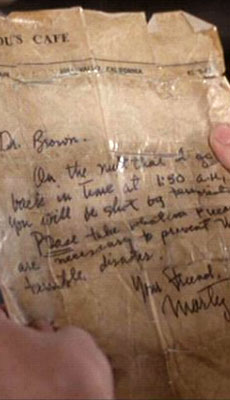 OU'S CAFE
VALLEY, CALIFORNIA
Dr. Brown.
On the night that I go
back in time at 1:30 A.M.,
You will be shot by terrorist
Please take whatever precau
are necessary to prevent th
terrible disaster.
Your Friend,
Marty